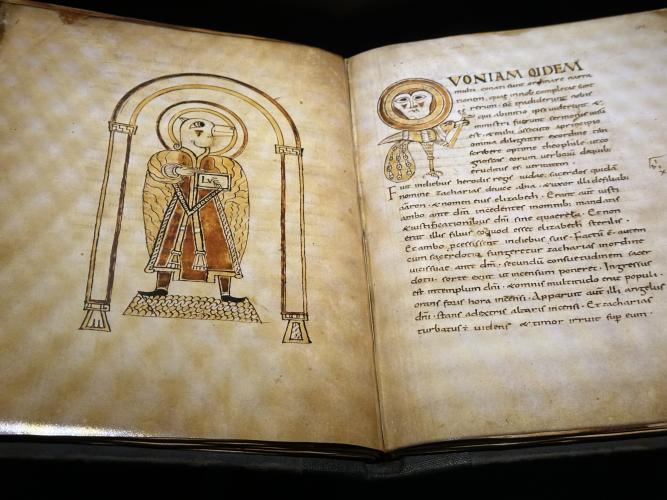 VONIAM QIDEM
multi conati sunt ordinare narra
nobis
rerum. nobis
qui abinitio ipsi uiderunt &
ministri fuerunt sermonis
est & mihi assecuto aprincipio
omnia diligent exordine tibi
scribere optime theophile. ut co
gnoscas eorum verborũ dequib
eruditus es veritatem
Fuit indiebus herodis regis iudae sacerdos quidã
nomine Zacharias deuice abia. & uxor illi defiliab;
aaron. & nomen eius elizabeth. Erant aut̄ iusti
ambo ante dm̄ incedentes inomnib; mandatis
& iustificationibus dnī sine querella. Et non
erat illis filius eoquod esset elizabeth sterilis.
Et ambo pcessissent indiebus suis. Factũ ē autem
cum sacerdotio fungeretur zacharias inordine
uicissuae. ante dm̄. secundũ consuetudinem sacer
dotii. sorte exiit ut incensum poneret. Ingressus
est intemplum dnī & omnis multitudo erat populi.
orans foris hora incensi. Apparuit aut̄ illi angelus
dnī. stans adextris altaris incensi. Et zacharias
turbatus ē uidens & timor irruit sup eum.